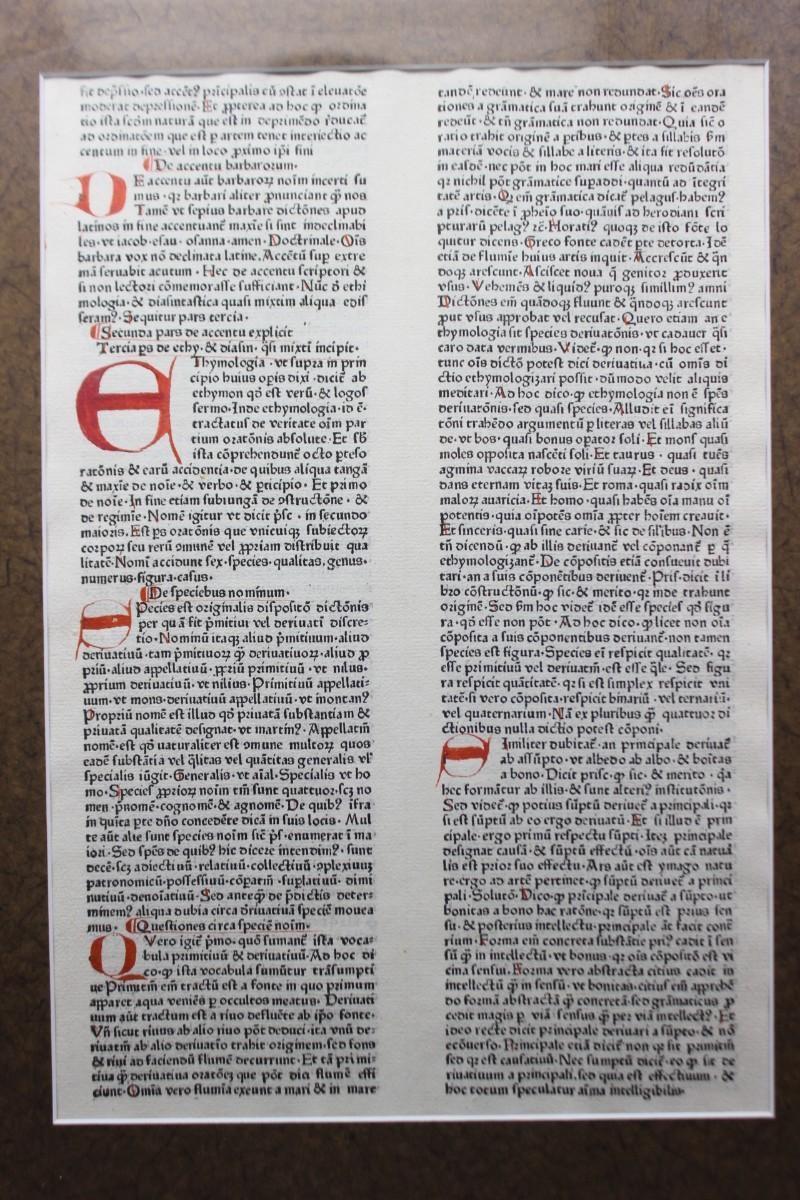 sit depſſio·ſed accēt? pricipalis cū ↄſtat ī eleuatōe
moderat depreſſionē·Et ꝓpterea ad hoc ꝙ ordina
tio iſta ſcōm naturā que eſt in deprimēdo ꝓducat᷒
ad ordinatōem que eſt ꝑ artem tenet interiectio ac
centum in fine·vel in loco ꝓximo ipi fini
¶De accentu barbarorum·
DE accentu aūt barbaroꝝ noīm incerti ſu
mus·qꝛ barbari aliter ꝓnunciant ꝙ̄ nos
Tamē vt ſepius barbare dictōnes apud
latinos in fine accentuant᷒ maxīe ſi ſint indeclinabi
les·vt iacob·eſau·oſanna·amen·Doctrinale·Oīs
barbara vox nō declinata latine·Accētū ſup extre
mā ſeruabit acutum·Hec de accentu ſcriptori &
ſi non lectori cōmemoraſſe ſufficiant·Nūc ð ethi
mologia·& diaſintaſtica quaſi mixtim aliqua ediſ
ſeram?·Sequitur pars tercia·
¶Secunda pars de accentu explicit
Tercia ps de ethy·& diaſin·q̄ſi mixti incipit·
EThymologia·vt ſupra in prin
cipio huius opis dixi·dicit᷒ ab
ethymon qð eſt verū·& logos
ſermo·Inde ethymologia·id ē·
tractatus de veritate oīm par
tium oratōnis abſolute·Et ſꝫ
iſta cōprehendunt᷒ octo ptes o
ratōnis & earū accidentia·de quibus aliqua tangā
& maxīe de noīe·& verbo·& pticipio·Et primo
de noīe·In fine etiam ſubiungā de ↄſtructōne·&
de regimīe·Nomē igitur vt dicit pſc·in ſecundo
maioris·Eſt ps oratōnis que vnicuiqꝫ ſubiectoꝝ
corpoꝝ ſeu rerū ↄmunē vel ꝓpriam diſtribuit qua
litatē·Nomī accidunt ſex·ſpecies·qualitas·genus·
numerus·figura·caſus·
¶De ſpeciebus nominum·
SPecies eſt originalis diſpoſitō dictōnis
per quā ſit pmitiui vel deriuati diſcre-
tio·Nominū itaqꝫ aliud pmitiuum·aliud
deriuatiuū·tam pmitiuoꝝ ꝙ̄ deriuatiuoꝝ·aliud ꝓ
priū·aliud appellatiuū·ꝓpriū primitiuū·vt nilus·
ꝓprium deriuatiuū·vt nilius·Primitiuū appellati-
uum·vt mons·deriuatiuū appellatiuū·vt montan?
Propriū nomē eſt illud qð priuatā ſubſtantiam &
priuatā qualitatē deſignat·vt martin?·Appellatiū
nomē·eſt qð naturaliter eſt ↄmune multoꝝ quos
eadē ſubſtātia vel q̄litas vel quātitas generalis vl̓
ſpecialis iūgit·Generalis·vt aīal·Specialis vt ho
mo·Species ꝓprioꝝ noīm tm̄ ſunt quattuor·ſcꝫ no
men·pnomē·cognomē·& agnomē·De quib? ifra
in quīta pte dn̄o concedēte dicā in ſuis locis·Mul
te aūt alie ſunt ſpecies noīm ſic̄ pſ·enumerat ī ma
iori·Sed ſpēs de quib? hic dicere intendim?·ſunt
decē·ſcꝫ adiectiuū·relatiuū·collectiuū·ↄplexiuuꝫ
patronomicū·poſſeſſiuū·cōparīn·ſuplatiuū·dimi
nutiuū·denoīatiuū·Sed anteꝙ̄ de pdictis deter-
minem? aliqua dubia circa ðriuatiuā ſpeciē mouea
mus·¶Queſtiones circa ſpeciē noīm·
QVero igit᷒ pmo·quō ſumant᷒ iſta voca-
bula primitiuū & deriuatiuū·Ad hoc di
co·ꝙ iſta vocabula ſumūtur trāſumpti
ue Primitiuū em̄ tractū eſt a fonte in quo primum
apparet aqua veniēs ꝑ occultos meatus·Deriuati
uum aūt tractum eſt a riuo defluēte ab ipo fonte·
Vn̄ ſicut riuus ab alio riuo pōt deduci·ita vnū de-
riuatiū ab alio deriuatio trahit originem·ſed fons
& riui ad faciendū flumē decurrunt·Et tā primi-
tiua ꝙ̄ deriuatiua oratōeꝫ que pōt dici flumē effi
ciunt·Omīa vero flumīa exeunt a mari & in mare
eandē redeunt·& mare non redundat·Sic oēs ora
tiones a grāmatica ſuā trahunt originē & ī eandē
redeūt·& tn̄ grāmatica non redundat·Quia ſic̄ o
ratio trahit originē a ptibus·& ptes a ſillabis ẜm
materiā vocis & ſillabe a literis·& ita ſit reſolutō
in eaſdē·nec pōt in hoc mari eſſe aliqua redūdātia
qꝛ nichil pōt grāmatice ſupaddi·quantū ad ītegri
tatē artis·Qꝛ em̄ grāmatica dicat᷒ pelagus·habem?
a priſ·dicēte ī phemio ſuo·quāuis ad herodiani ſcri
pturarū pelag? ꝛē·Horati? quoqꝫ de iſto fōte lo
quitur dicens·Greco fonte cadēt pte detorta·Idē
etiā de flumīe huius artis inquit·Accreſcūt & q̄n
doqꝫ areſcunt·Aſciſcet noua q̄ genitor ꝓduxerit
vſus·Vehemēs & liquid? puroqꝫ ſimillim? amni
Dictōnes em̄ quādoqꝫ fluunt & q̄ndoqꝫ areſcunt
ꝓut vſus approbat vel recuſat·Quero etiam an e
thymologia ſit ſpecies deriuatōnis·vt cadauer q̄ſi
caro data vermibus·Videt᷒·ꝙ non·qꝛ ſi hoc eſſet·
tunc oīs dictō poteſt dici deriuatiua·cū omīs di
ctio ethymologizari poſſit·dūmodo velit aliquis
meditari·Ad hoc dico·ꝙ ethymologia non ē ſpēs
deriuatōnis·ſed quaſi ſpecies·Alludit eī ſignifica
tōni trahēdo argumentū ꝑ literas vel ſillabas aliū
de·vt bos·quaſi bonus opator ſoli·Et mons quaſi
moles oppoſita naſcēti ſoli·Et taurus·quaſi tues
agmina vaccaꝝ robore viriū ſuaꝝ·Et deus·quaſi
dans eternam vitaꝫ ſuis·Et roma·quaſi radix oīm
maloꝝ auaricia·Et homo·quaſi habēs oīa manu oī
potentis·quia oīpotēs omīa ꝓpter hoīem creauit·
Et ſinceris·quaſi ſine carie·& ſic de ſilibus·Non ē
tn̄ dicendū·ꝙ ab illis deriuant᷒ vel cōponant᷒ ꝑ q̄
ethymologizant᷒·De cōpoſitis etiā conſueuit dubi
tari·an a ſuis cōponētibus deriuent᷒·Priſ·dicit ī li
bro cōſtructōnū·ꝙ ſic·& merito·qꝛ inde trahunt
originē·Sed ẜm hoc videt᷒ idē eſſe ſpecies qð figu
ra·qð eſſe non pōt·Ad hoc dico·ꝙ licet non oīa
cōpoſita a ſuis componentibus deriuant᷒·non tamen
ſpecies eſt figura·Species eī reſpicit qualitatē·qꝛ
eſſe primitiuū vel deriuatiū·eſt eſſe q̄le·Sed figu
ra reſpicit quātitatē·qꝛ ſi eſt ſimplex reſpicit vni
tatē·ſi vero cōpoſita·reſpicit binariū·vel ternariū·
vel quaternarium·Nā ex pluribus ꝙ̄ quattuor di
ctionibus nulla dictio poteſt cōponi·
SImiliter dubitat᷒·an principale deriuat᷒
ab aſſūpto·vt albedo ab albo·& boītas
a bono·Dicit priſc·ꝙ ſic·& merito·q̄a
hec formātur ab illis·& ſunt alteri? inſtitutōnis·
Sed videt᷒·ꝙ potius ſūptū deriuet᷒ a principali·qꝛ
ſi eſt ſūptū ab eo ergo deriuatū·Et ſi illud ē prin
cipale·ergo primū reſpectu ſūpti·Iteꝫ principale
deſignat cauſā·& ſūptū effectū·oīs aūt cā natura
lis eſt prior ſuo effectu·Ars aūt eſt ymago natu
re·ergo ad artē pertinet·ꝙ ſūptū deriuet᷒ a princi
pali·Solutō·Dico·ꝙ pricipale deriuat᷒ a ſūpto·ut
bonitas a bono hac ratōne·qꝛ ſūptū eſt prius ſen
ſu·& poſterius intellectu·principale aūt facit econ᷒
rium·Forma em̄ concreta ſubſtātie pri? cadit ī ſen
ſū ꝙ in intellectū·vt bonus·qꝛ oīs cōpoſitō eſt vi
cina ſenſui·Forma vero abſtracta citius cadit in
intellectū ꝙ̄ in ſenſū·vt bonitas·citius em̄ apprehē
do formā abſtractā ꝙ̄ concretā·ſed grāmaticus ꝓ
cedit magis ꝑ viā ſenſus ꝙ̄ per viā intellect?·Et
ideo recte dicit principale deriuari a ſūpto·& nō
ecōuerſo·Principale etiā dicit᷒ non qꝛ ſit primitiū
ſed qꝛ eſt cauſatiuū·Nec ſumptū dicit᷒·eo ꝙ ſit de
riuatiuum a principali·ſed quia eſt effectiuum·&
hoc totum ſpeculatur aīma intelligibilis·